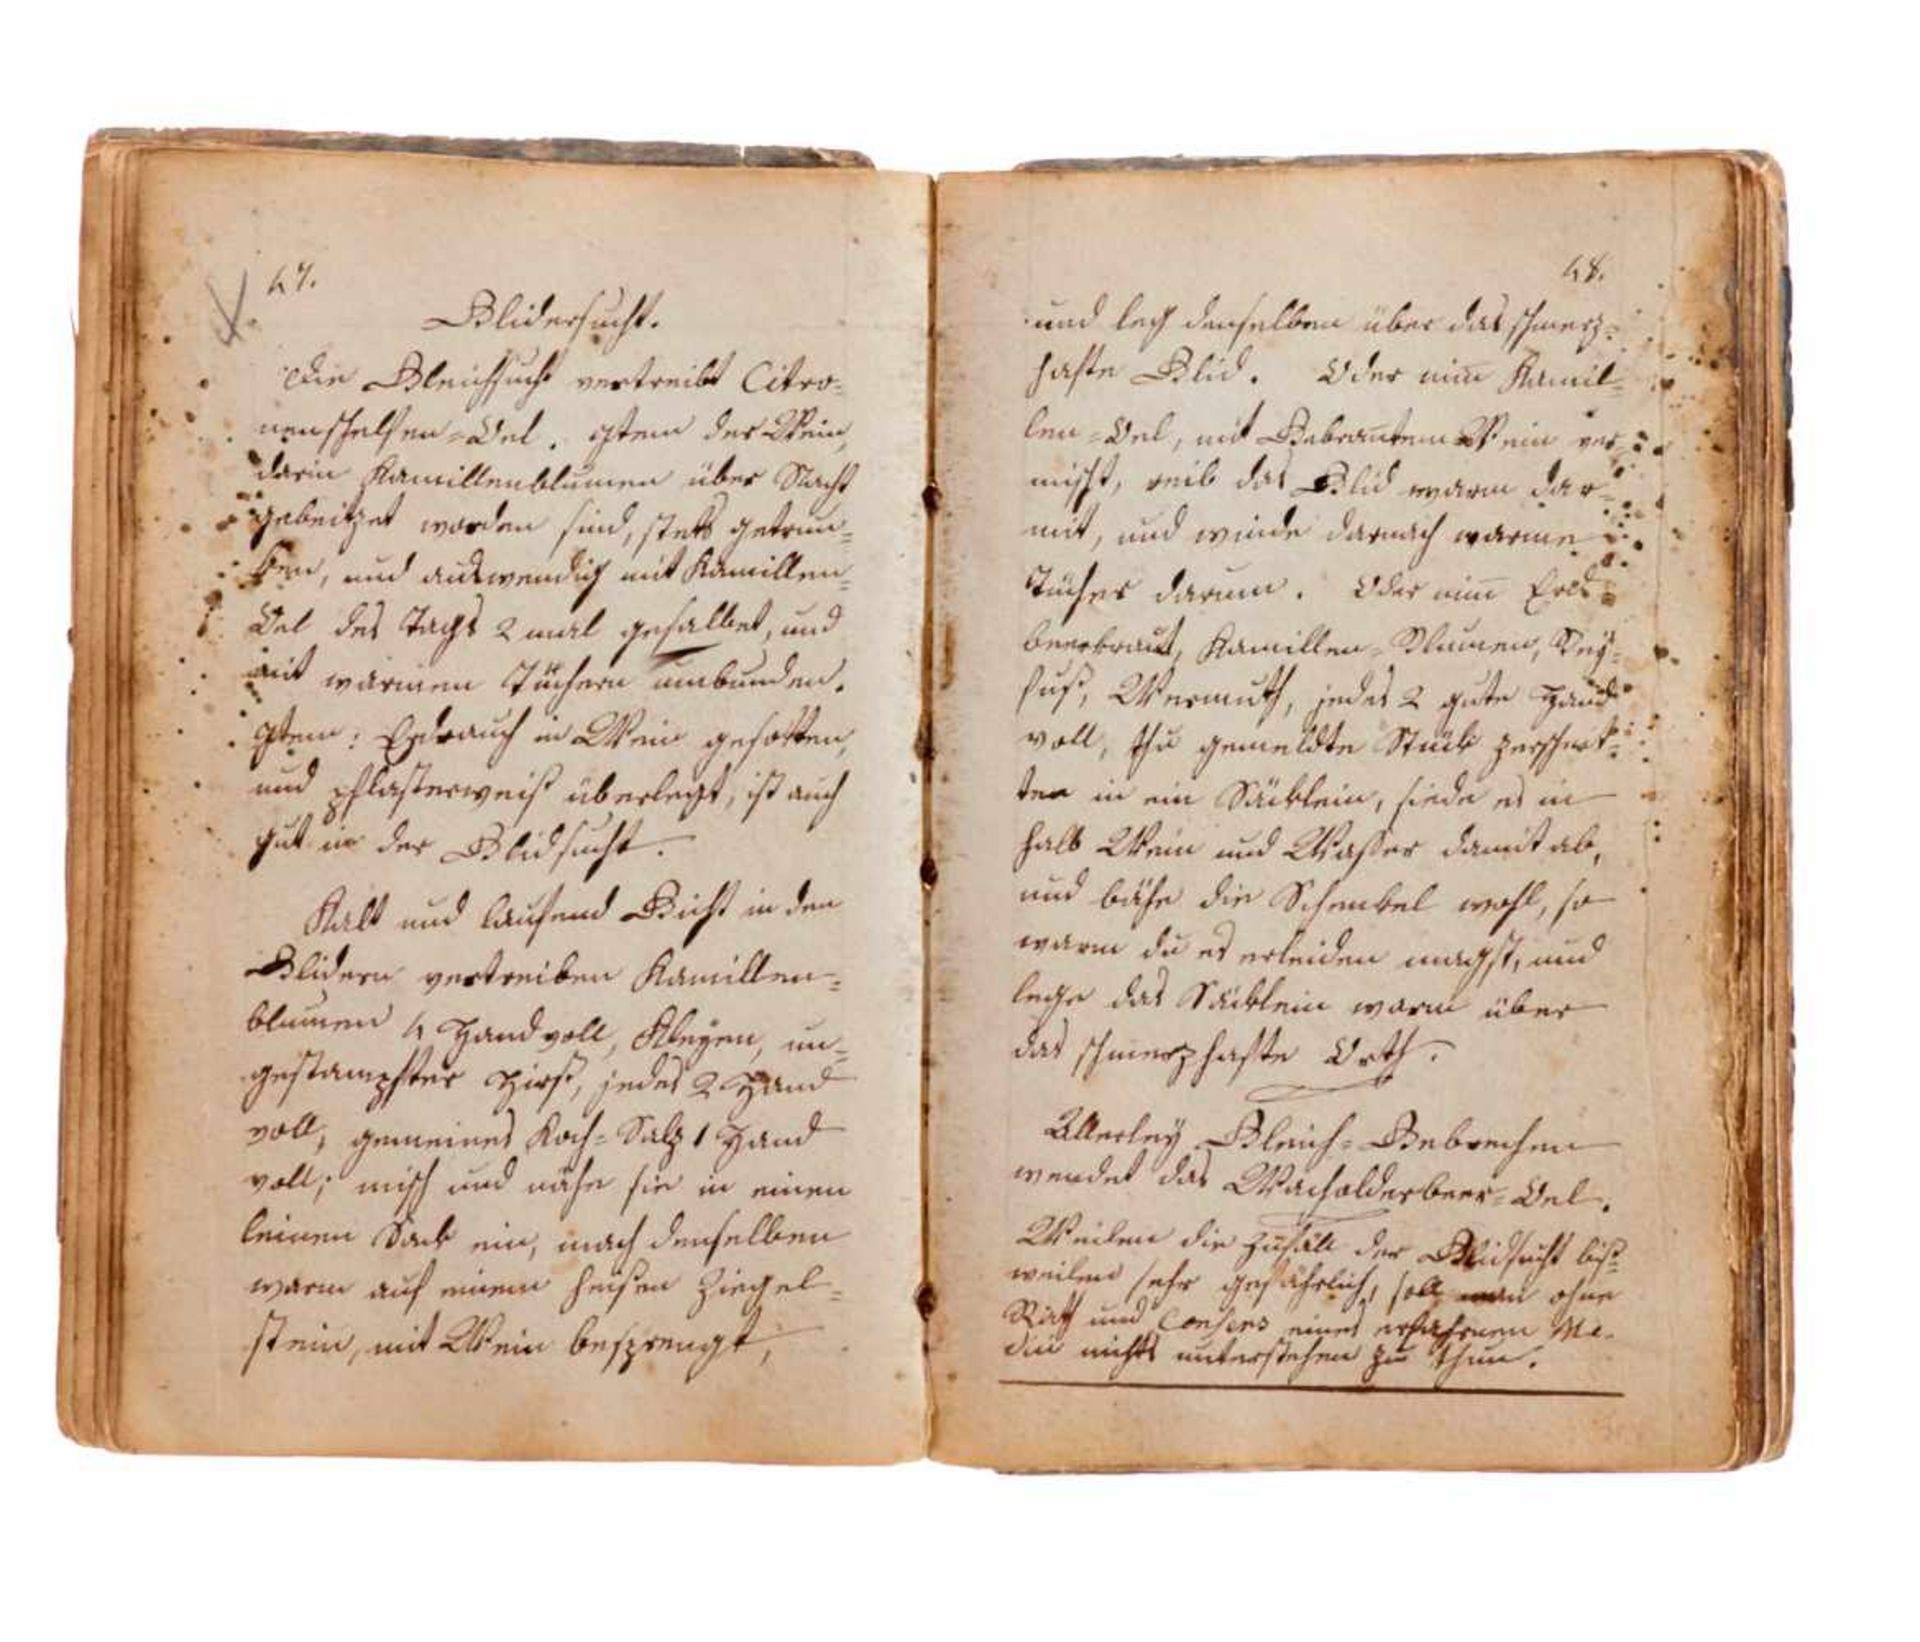 47.
Glidersucht.
Die Gleichsucht vertreibt Citro=
nenschelfen=Oel. Item der Wein,
darin Kamillenblumen über Nacht
gebeitzet worden sind, stets getrun=
ken, und auswendig mit Kamillen=
Oel des Tags 2 mal gesalbet, und
mit warmen Tüchern umbunden.
Item: Erdrauch in Wein gesotten,
und pflasterweiß überlegt, ist auch
gut in der Glidsucht.
Kalt und laufend Gicht in den
Glidern vertreiben Kamillen=
blumen 4 Hand voll, Kleyen, un=
gestampfter Hirß, jedes 2 Hand
voll, gemeines Koch=Salz 1 Hand
voll; misch und nähe sie in einen
leinen Sack ein, mach denselben
warm auf einem heisen Ziegel=
stein, mit Wein besprengt,
48.
und leg denselben über das schmerz=
hafte Glid. Oder nim̅ Kamil=
len=Oel, mit Gebrantem Wein ver=
mischt, reib das Glid warm dar=
mit, und winde darnach warme
Tücher darum. Oder nim̅ Erd=
beerkraut, Kamillen=Blumen, Bey=
fuß, Wermuth, jedes 2 gute Hand
voll, thu gemeldte Stück zerschnit=
ten in ein Säcklein, siede es in
halb Wein und Wasser damit ab,
und bähe die Schenkel wohl, so
warm du es erleiden magst, und
lege das Säcklein warm über
das schmerzhafte Orth.
Allerley Gleich=Gebrechen
wendet das Wacholderbeer=Oel.
Weilen die Zufäll der Glidsucht biß=
weilen sehr gefährlich, soll man ohne
Rath und Consens eines erfahrnen Me=
dici nichts unterstehen zu thun.